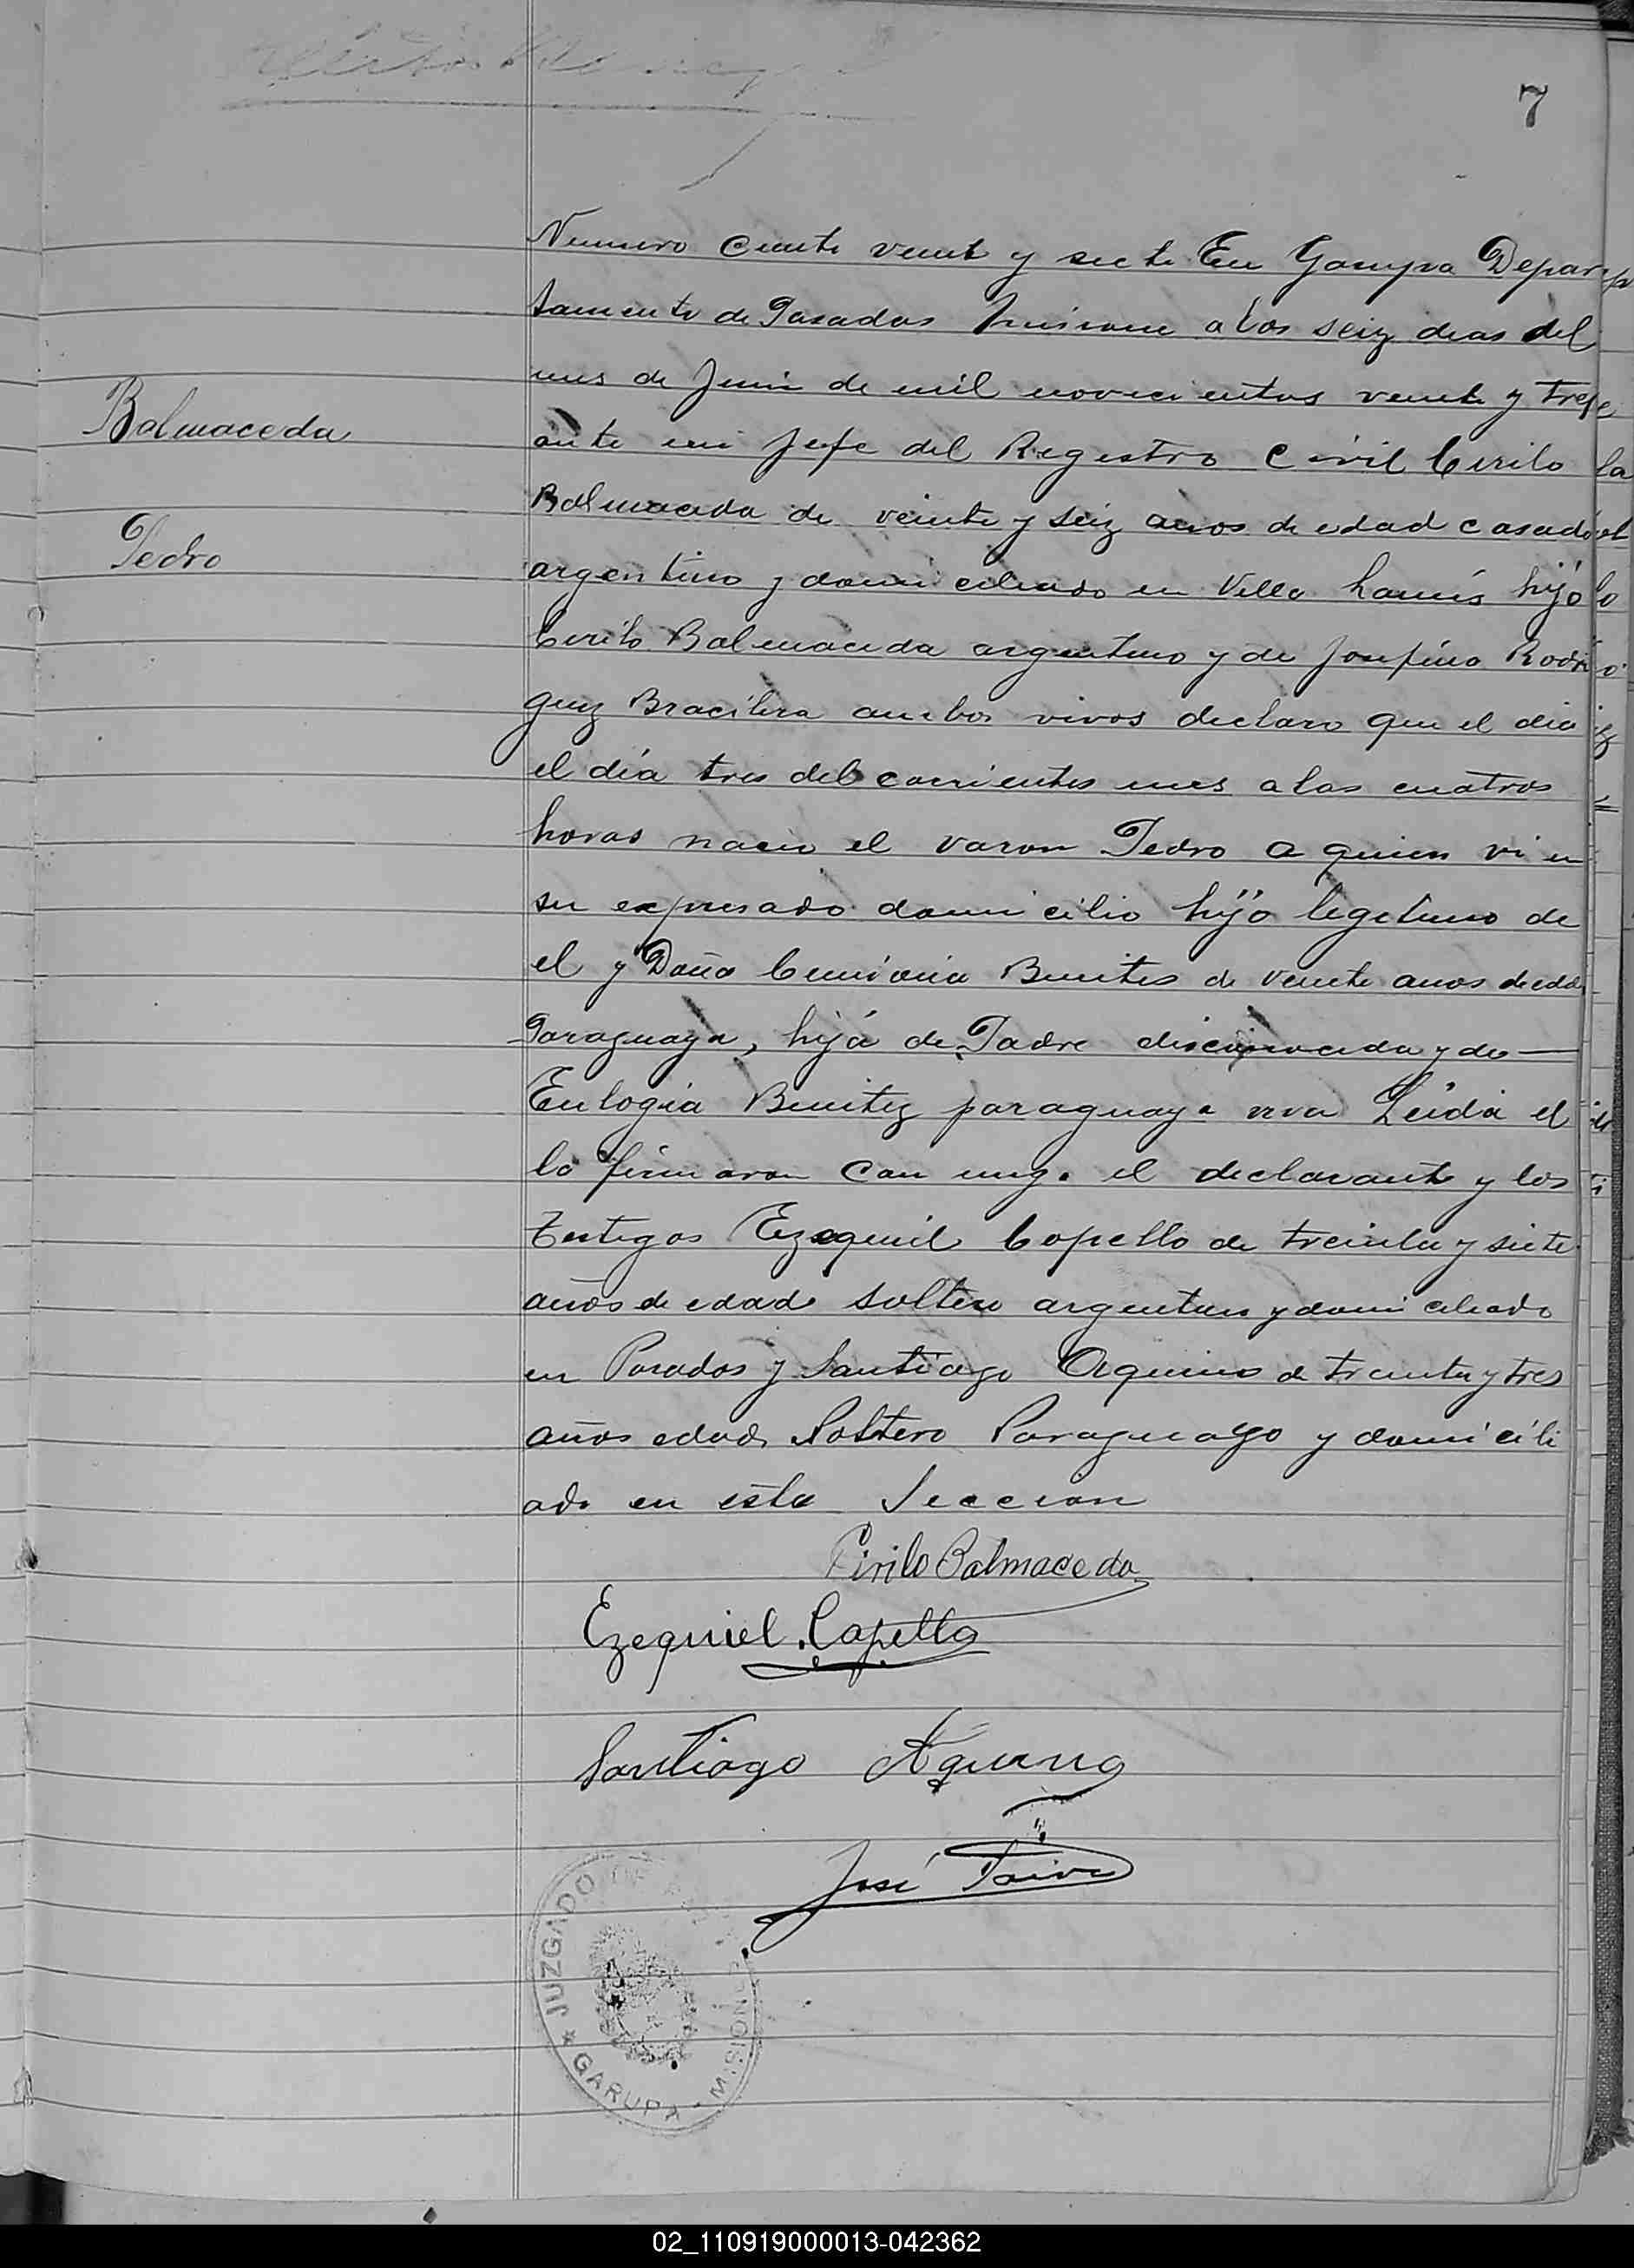 7
Numero Ciento veint y siete En Garupa Depar
tamento de Posadas Misiones a los seiz dias del
mes de Junio de mil novecientos veinte y Trese
Balmaceda
ante mi Jefe del Registro Civil Cirilo
Balmaceda de veinte y seiz años de edad casado
Pedro
argentino y domiciliado en Villa Lanús hijo
Cirilo Balmaceda argentino y de Josefina Rodri
guez Bracilera ambos vivos declaro que el dia
el día tres del corrientes mes a las cuatros
horas nacio el varon Pedro a quien vi en
su expresado domicilio hijo legitimo de
el y Doña Benites de veinte anos de edad
Paraguaya, hija de Padre y de
Eulogia Benitez paraguaya viva Leida el
lo firmaron con mig. el declarante y los
Testigos Ezequiel Copello de treinta y siete
años de edad soltero argentino y domiciliado
en Posadas y Santiago Aquino de treinta y tres
años edad Soltero Paraguayo y domicili
ado en esta Seccion
Cirilo Balmaceda
Ezequiel Capello
Santiago Aquino
José Paiva
JUZGADO DE
GARUPA MISIONES
02_110919000013-042362